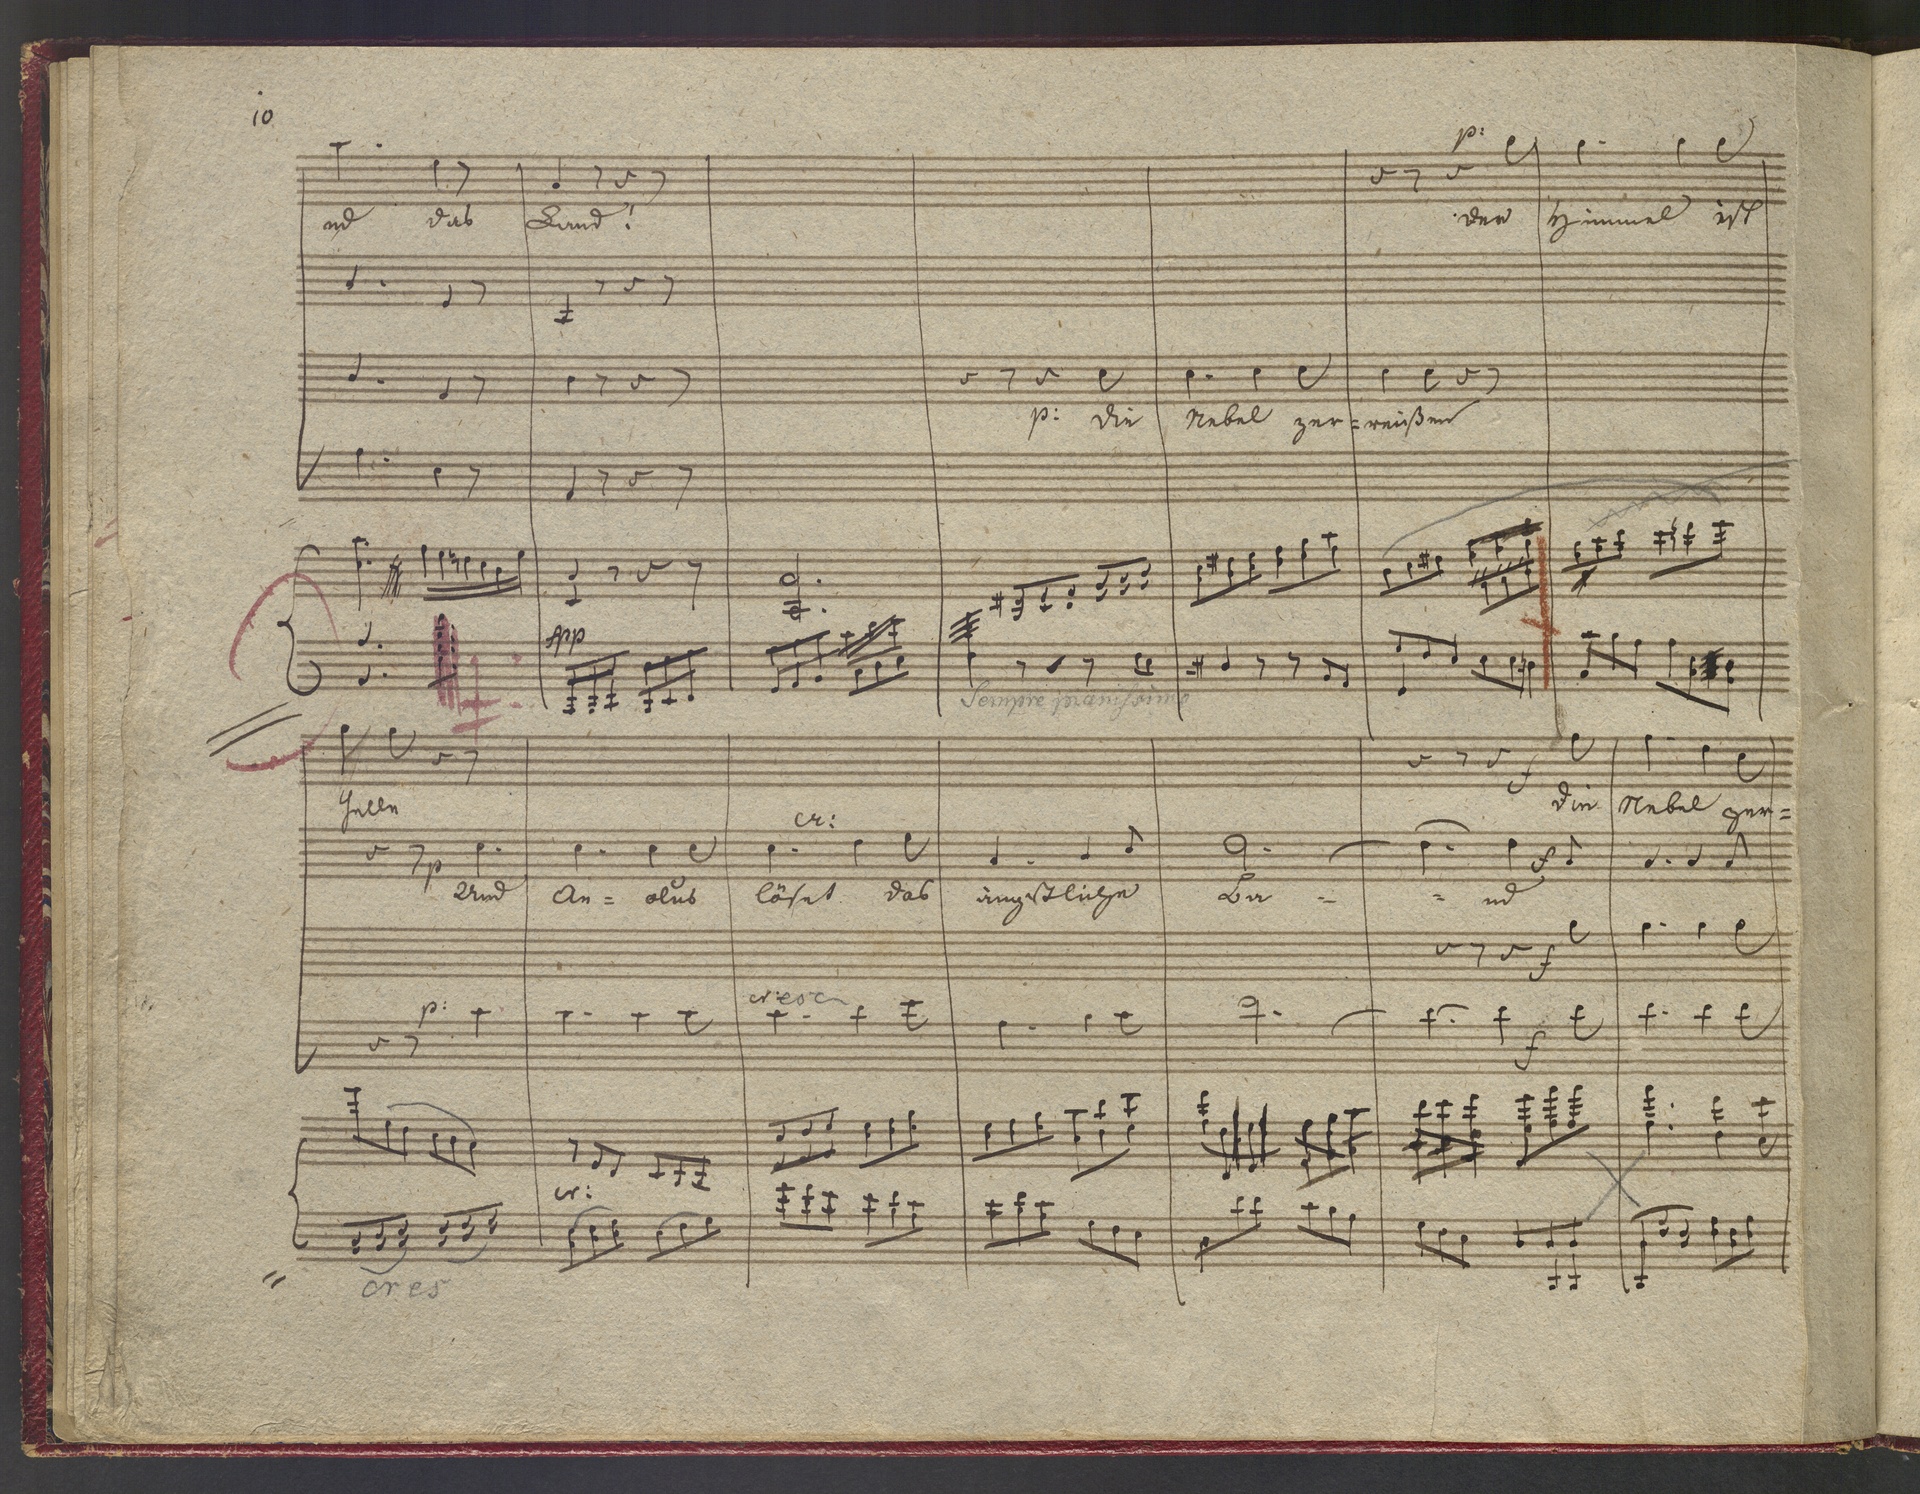 10
p:
nd das Land! der Himmel ist
p: die Nebel zer=reißen
pp
Sempre pianissimo
f
helle die Nebel zer=
cr:
p f
Und Ae= olus löset das ängstliche Ba - = nd
f
cresc
p:
f
cr:
cres